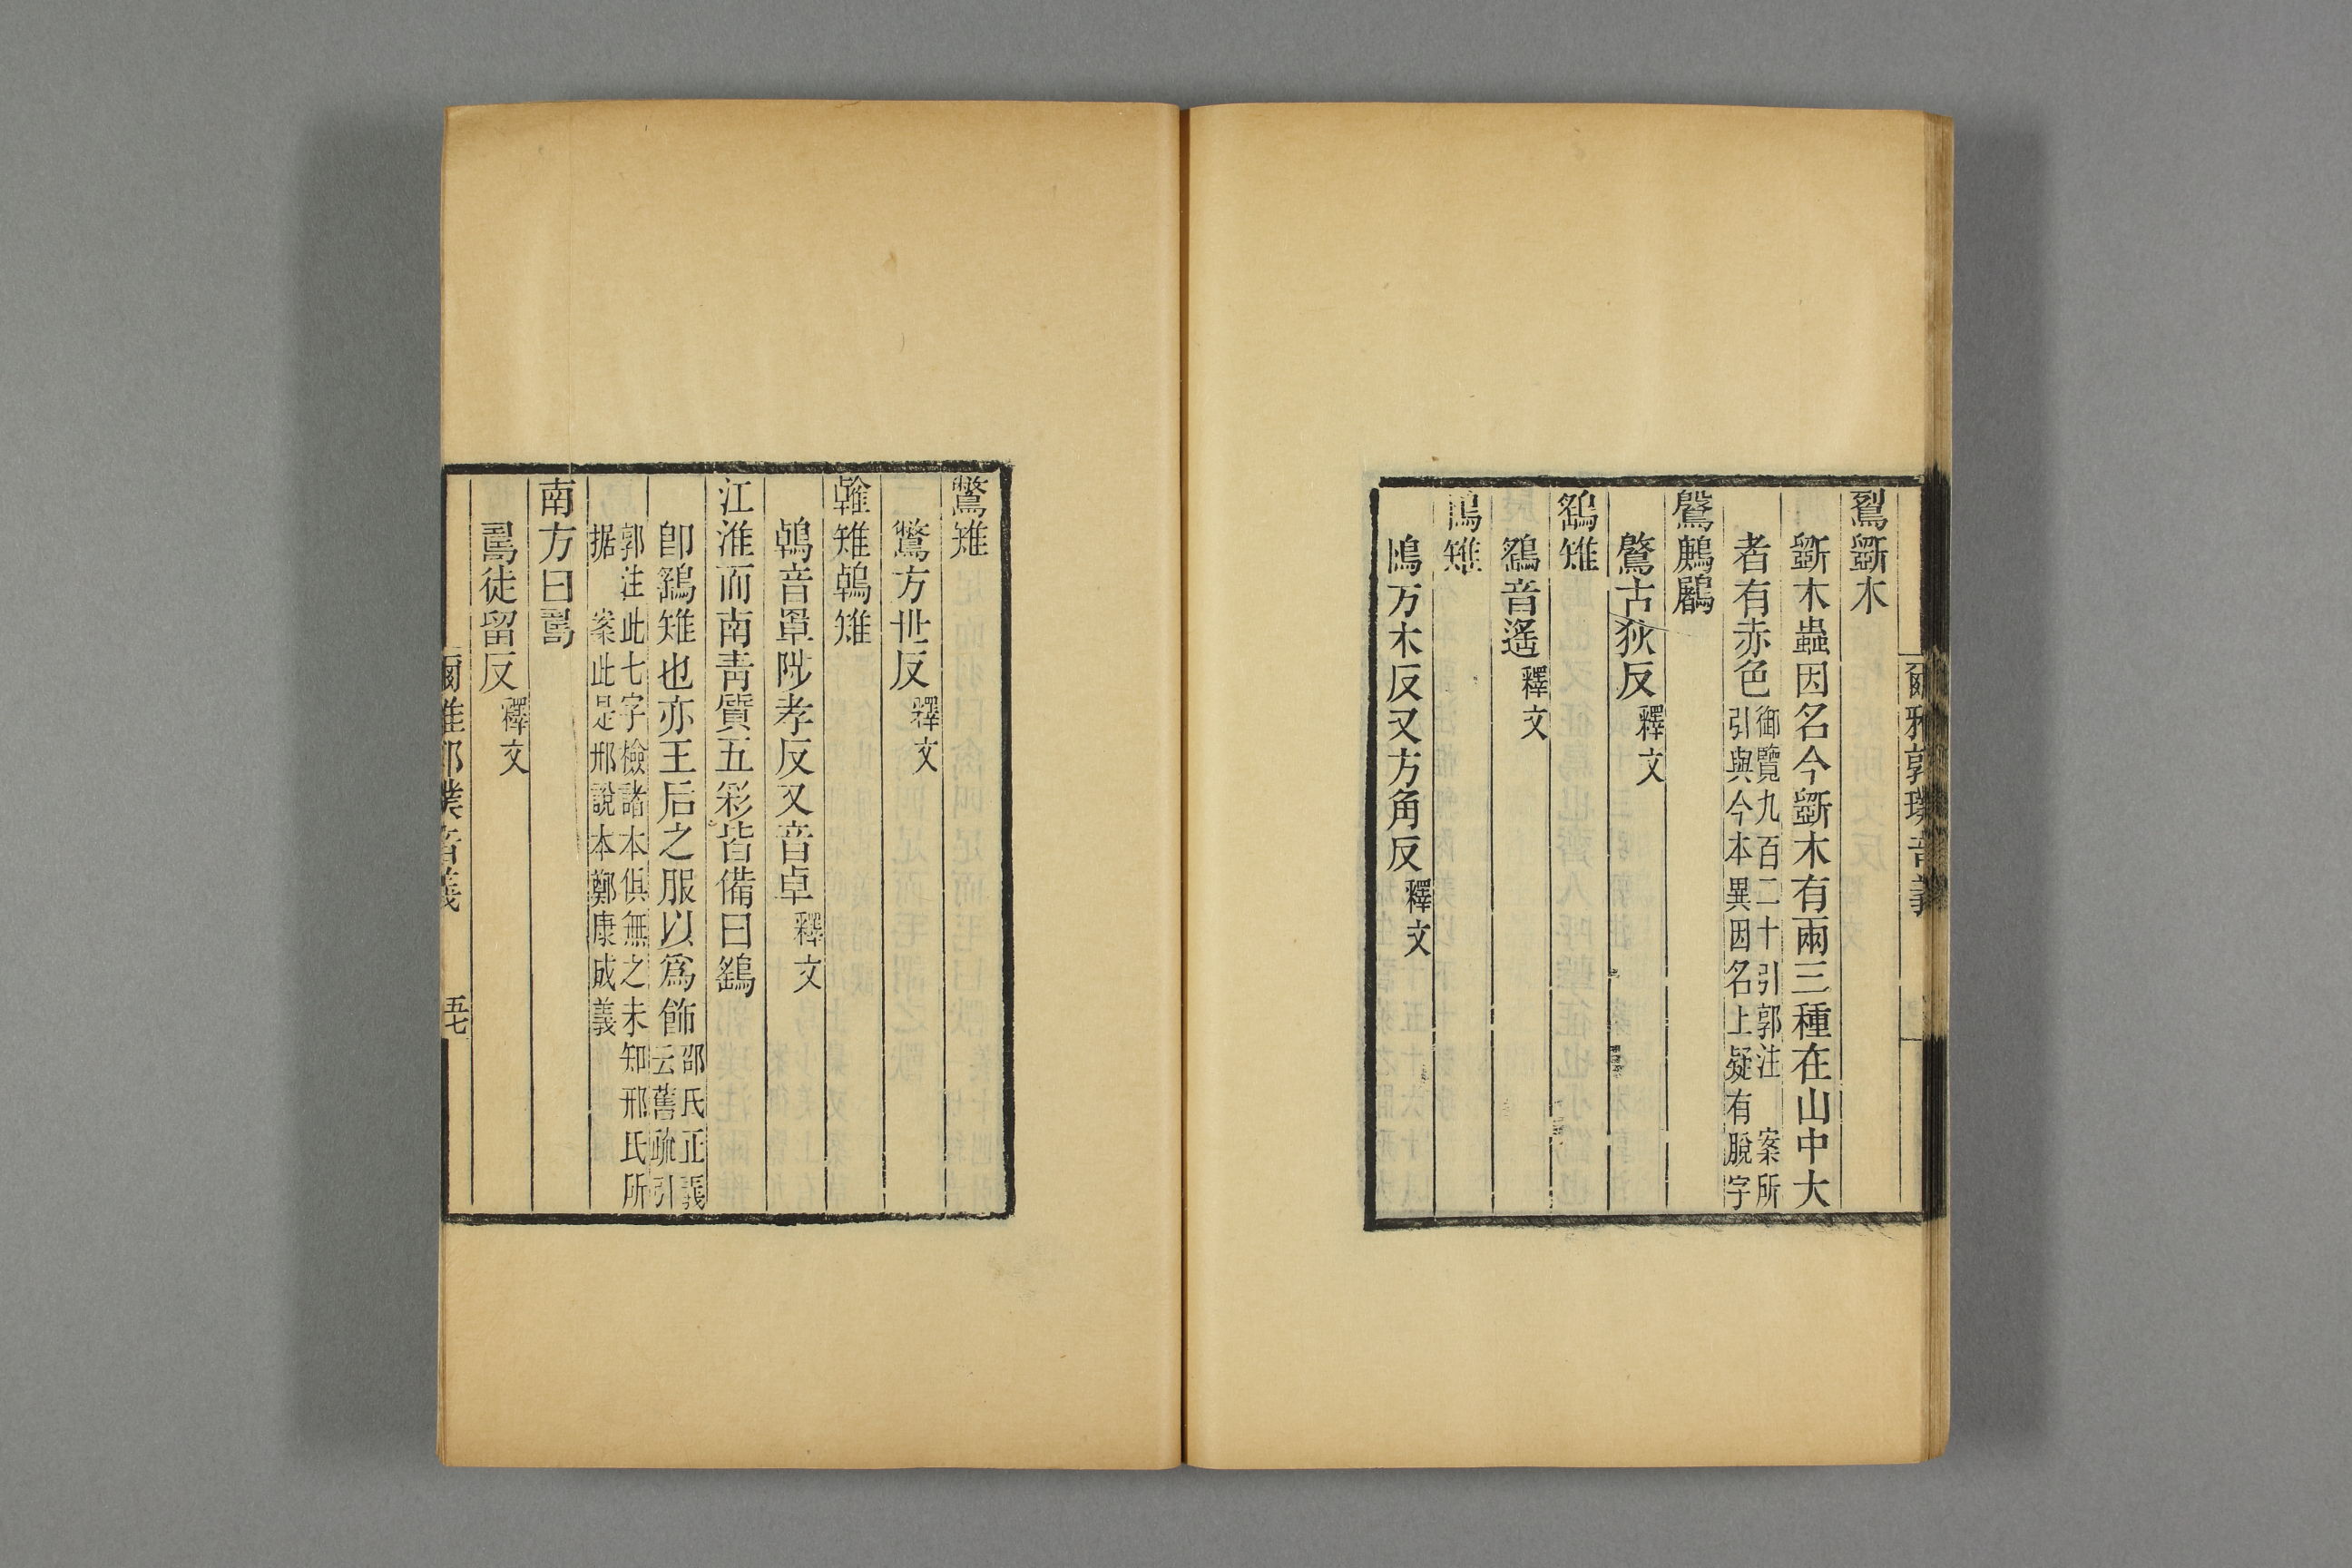 爾雅郭璞音義
鴷斵木
斵木蟲因名今斵木有兩三種在山中大
者有赤色御覽九百二十引郭注 案所
引與今本異因名上疑有脫字
鷑鶶鷵
鷩古狄反釋文
鷂雉
鷂音遙釋文
鳪雉
鳪方木反又方角反釋文
鷩雉
鷩方世反釋文
雗雉鵫雉
鵫音罩陟孝反又音卓釋文
江淮而南青質五彩皆備曰鷂
卽鷂雉也亦王后之服以爲飾邵氏正義
云舊疏引
郭注此七字檢諸本俱無之未知邢氏所
据 案此是邢說本鄭康成義
南方曰𠷎
𠷎徒留反釋文
爾雅郭璞音義 五七